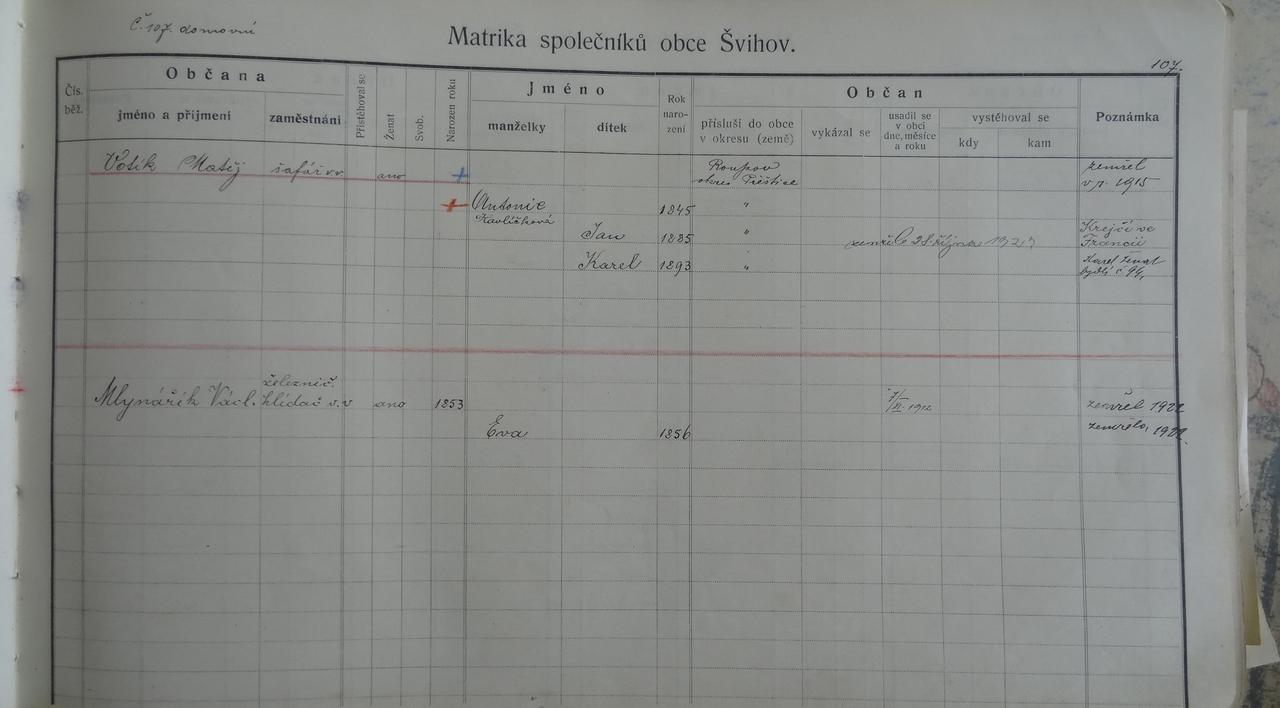 Č. 107. domovní
Matrika společníků obce Švihov.
107.
Čís. běž.
Občana
jméno a příjmení
zaměstnání
Přistěhoval se
Ženat
Svob.
Narozen roku
Jméno
manželky
dítek
Rok naro- zení
Občan
přísluší do obce v okresu (země)
vykázal se
usadil se v obci dne, měsíce a roku
vystěhoval se
kdy
kam
Poznámka
Votík Matěj šafář vv ano + Roupov zemřel
okres Přeštice v r. 1915
+ Antonie 1845 "
Havlíčková
Jan 1885 " zemřel 28. října Krejčí ve
Francii
Karel 1893 " Karel ženat
bydlí č 94,
železnič.
Mlynářík Václ. hlídač v.v ano 1853 7/XI. 1912 zemřel
Eva 1856 zemřela